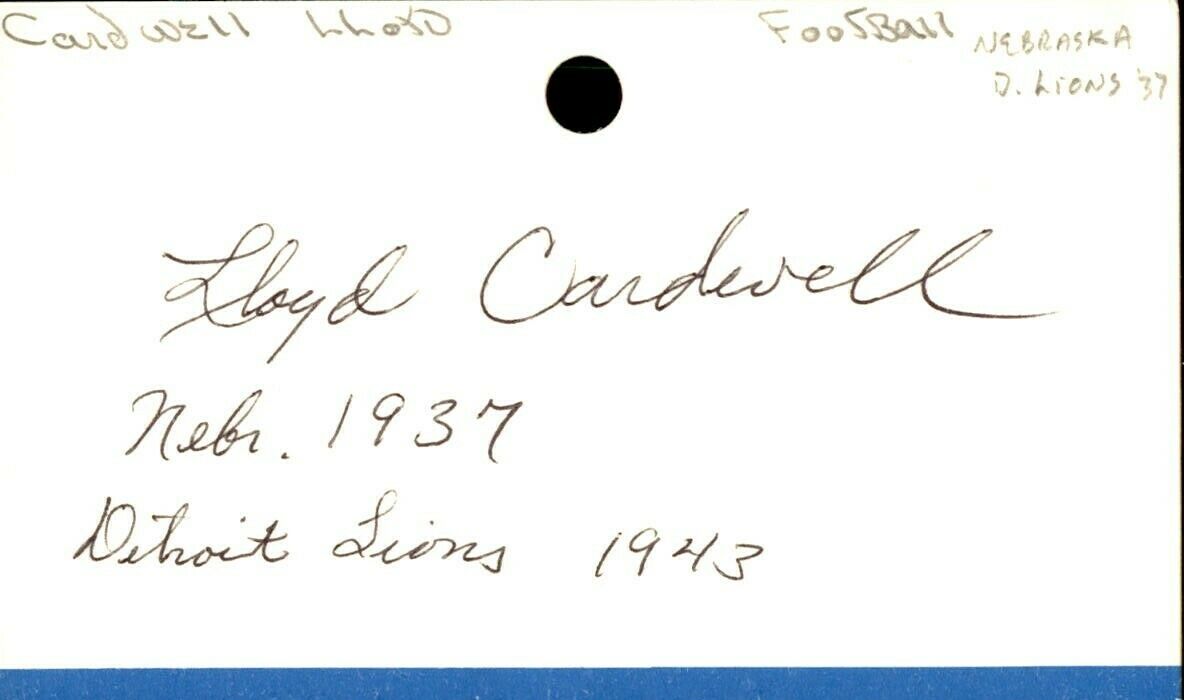 Cardwell LLOYD Football NEBRASKA
D. LIONS '37
Lloyd Cardwell
Nebr. 1937
Detroit Lions 1943